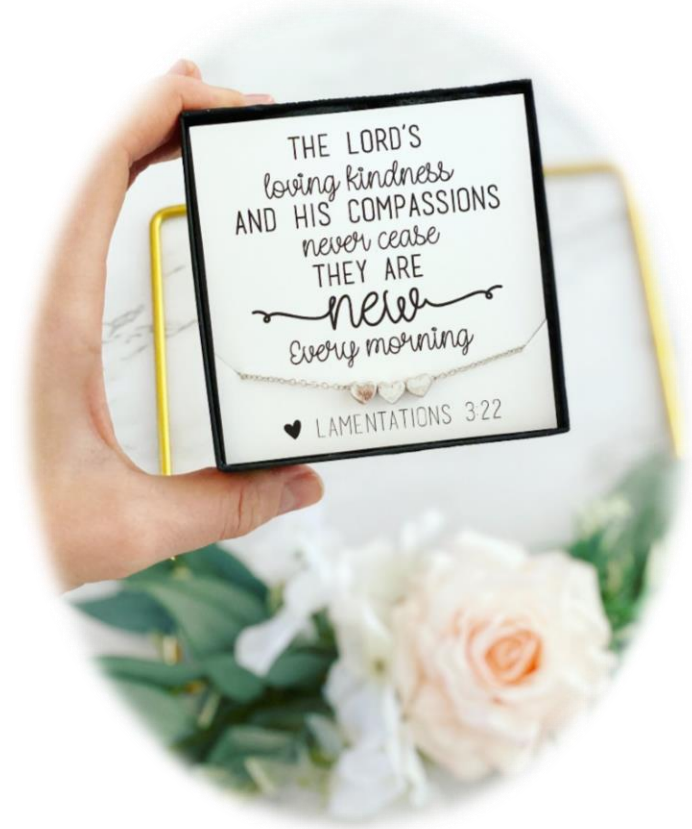 THE LORD'S
loving kindness
AND HIS COMPASSIONS
never cease
THEY ARE
new
Every morning
♥ LAMENTATIONS 3:22